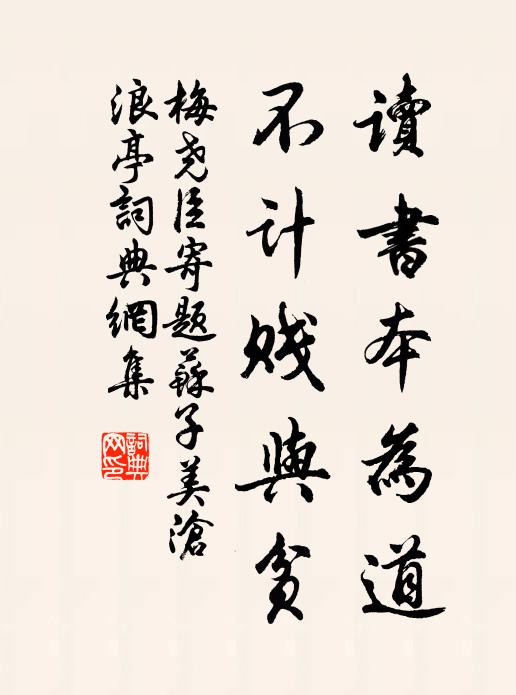 讀書本為道
不計賤與貧
梅尧臣寄題蘇子美滄
浪亭詞典網集
詞典
网印